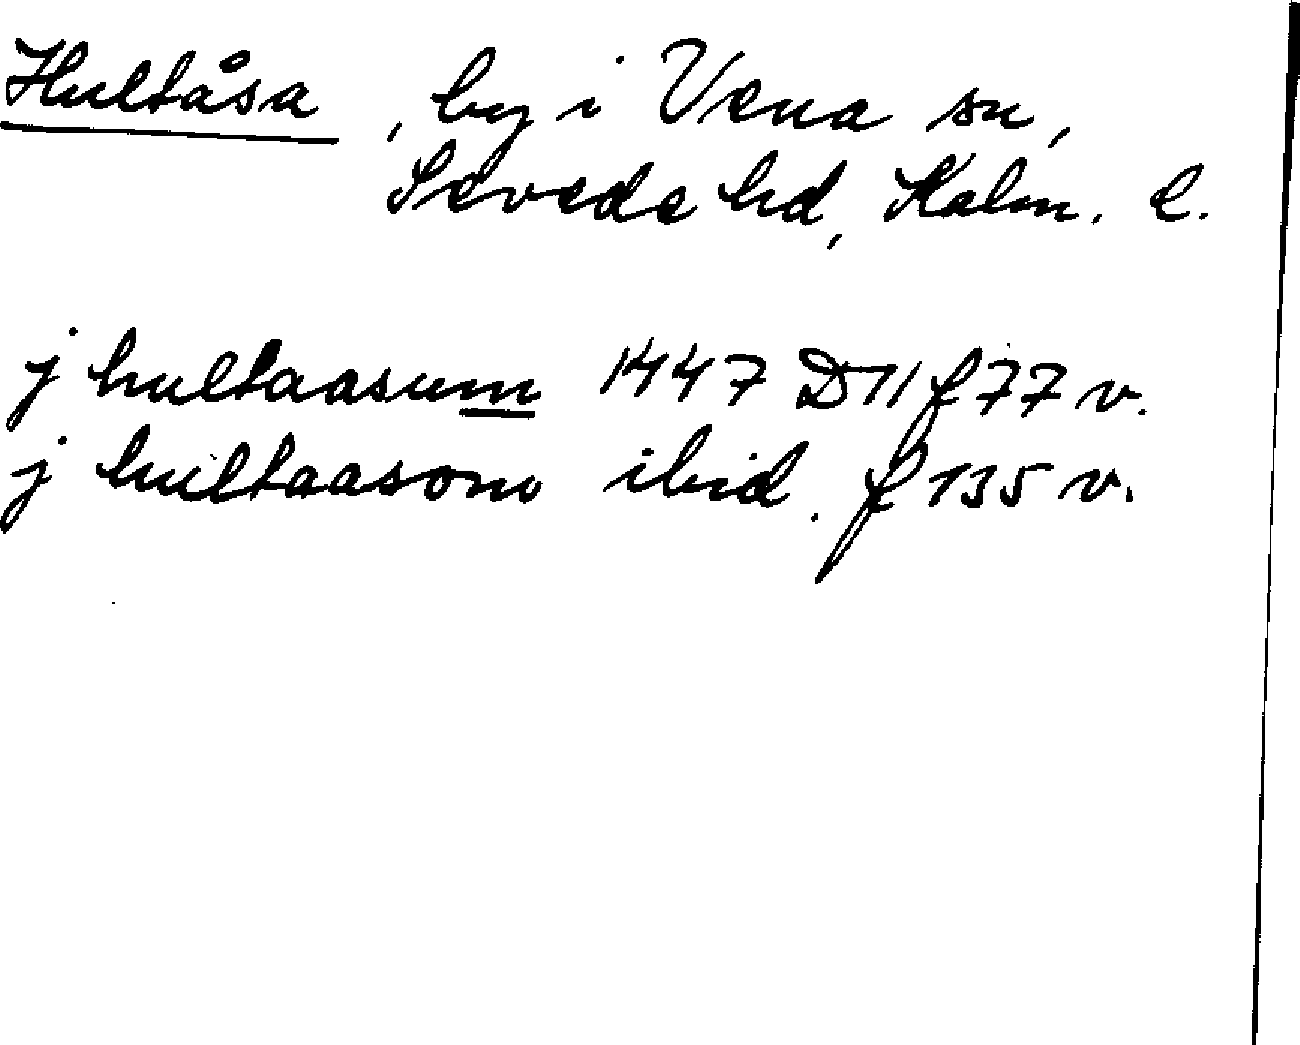 Hultåsa, by i Vena sn,
Sevede hd, Kalm. l.
j hultaasum 1447 D 11 f 77 v.
j hultaasom ibid. f 135 v.